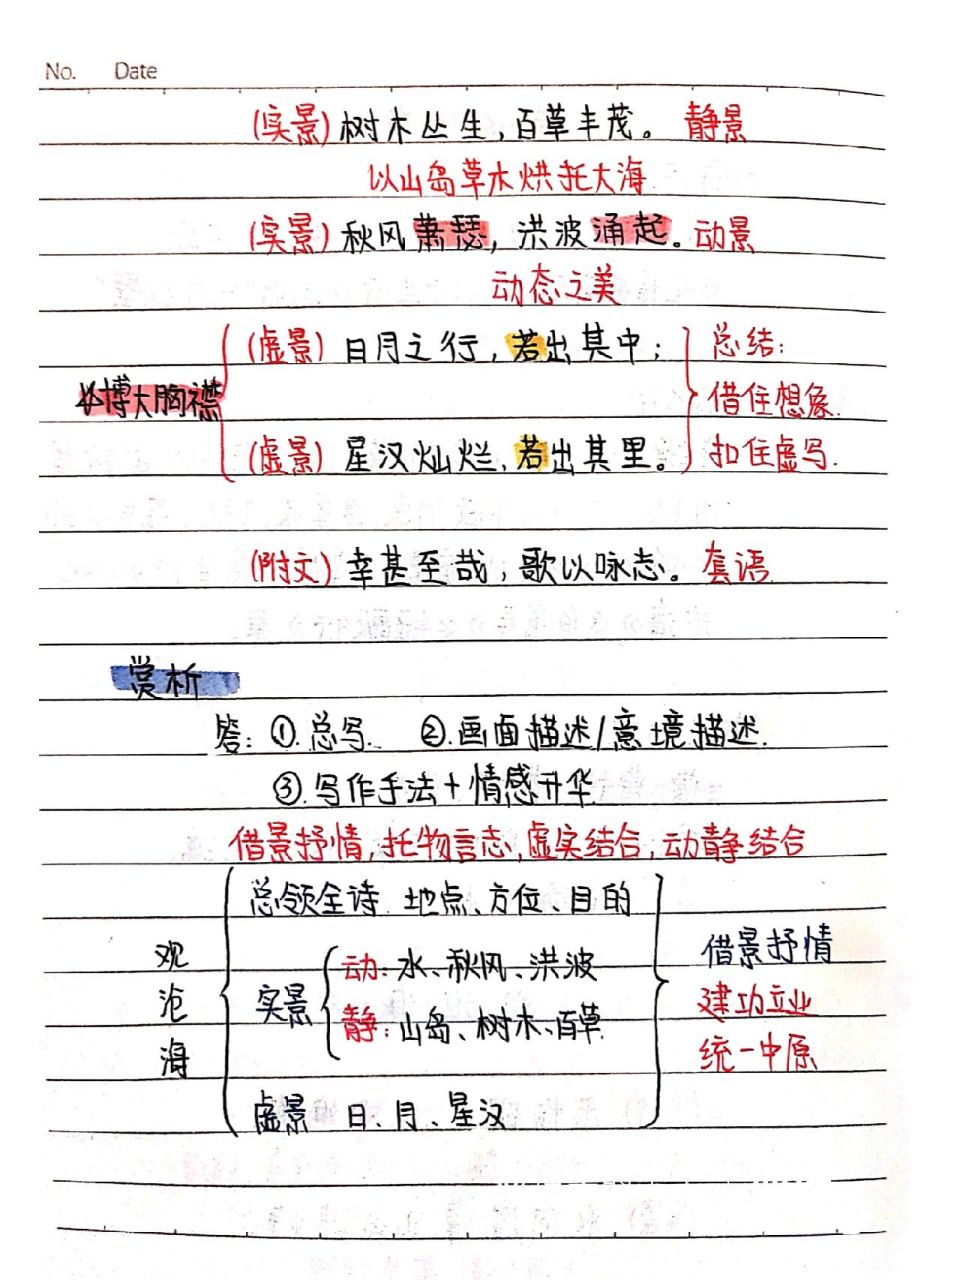 No. Date
(实景)树木丛生,百草丰茂。 静景
以山岛草木烘托大海
(实景)秋风萧瑟,洪波涌起。动景
动态之美
(虚景)日月之行,若出其中; 总结:
博大胸襟 借住想象.
(虚景)星汉灿烂,若出其里。 扣住虚写.
(附文)幸甚至哉,歌以咏志。 套语
赏析
答:①.总写. ②.画面描述/意境描述.
③.写作手法+情感升华
借景抒情,托物言志,虚实结合,动静结合
总领全诗 地点、方位、目的
观沧海
实景
动:水、秋风、洪波
静:山岛、树木、百草.
虚景 日、月、星汉
借景抒情
建功立业
统一中原